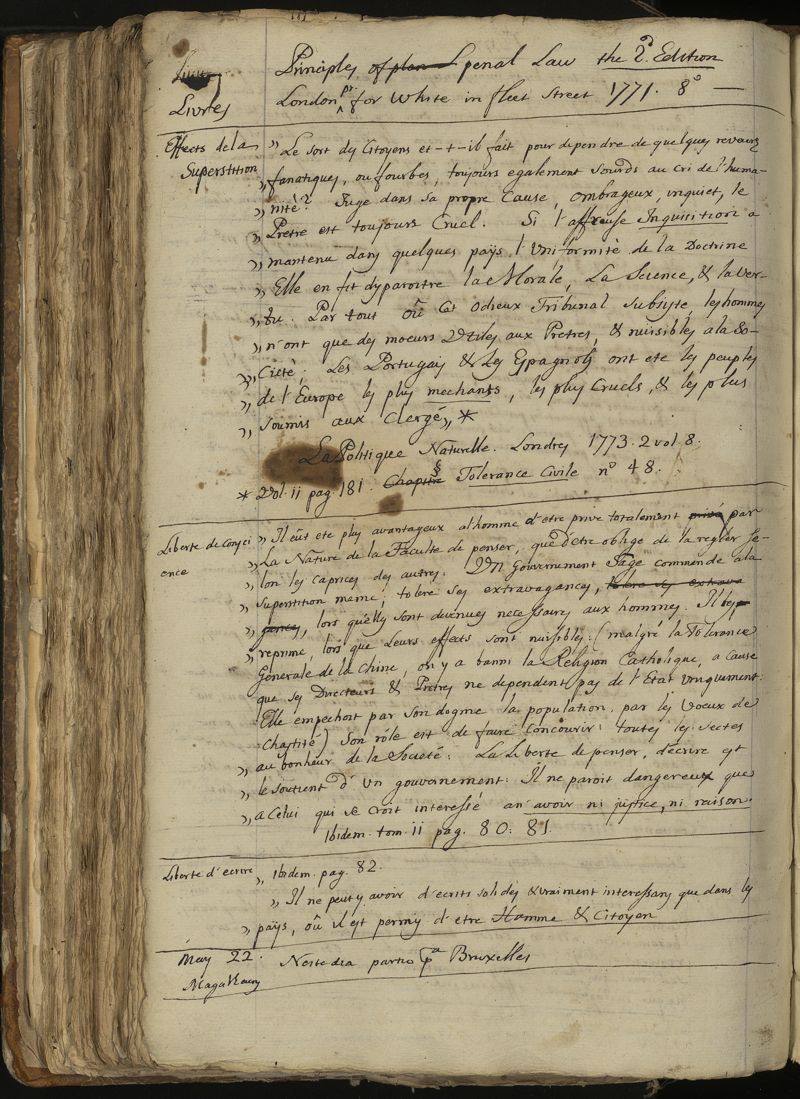 Livres
Principles of plan penal Law the 2.d Edition
London pr. for White in fleet Street 1771. 8º —
Effects de la
Superstition
„ Le sort des Citoyens et-t-il fait pour dependre de quelques reveurs
„ fanatiques, ou fourbes, toujours egalement sourds au cri de l'huma-
„ nité? Juge dans sa propre Cause, ombrageux, inquiet, le
„ Pretre est toujours Cruel. Si l'affreuse Inquisition a
„ maintenu dans quelques païs l'uniformitè de la Doctrine
„ Elle en fit disparoitre la Morale, La Science, & la Ver-
„ tu. Par tout où Cet odieux Tribunal subsiste, les hommes
„ n'ont que des moeurs Utiles aux Pretres, & nuisibles a la So-
„ Cietè: Les Portugais & Les Espagnols ont ete les peuples
„ de l'Europe les plus mechants, les plus Cruels, & les plus
„ soumis aux Clergé „ *
La Politique Naturelle. Londres 1773. 2 vol. 8.
* Vol. ii pag. 181. Chapitre § Tolerance Civile nº 48.
Liberte de Consci
ence
„ Il eût ete plus avantageux al homme d'etre prive totalement privé par
„ La Nature de la Faculte de penser, que d'etre oblige de la regler se-
„ lon les Caprices des autres: Un Gouvernement Sage commande a la
„ superstition meme; tolere ses extravagances, tolere ses extrava
„ gances, lors qu'elles sont devenues necessaires aux hommes. Il les
„ reprime, lors que leurs effects sont nuisibles: (malgre la Tolerance
Generale de la Chine, on y a banni la Religion Catholique, a Cause
que ses Directeurs & Pretres ne dependent pas de l'Etat Uniquement:
Elle empechoit par son dogme la population, par les Voeux de
Chastité) Son rôle est de faire Concourir toutes les sectes
„ au bonheur de la Societé: La Liberte de penser, d'ecrire est
„ le soutient d'un gouvernement: Il ne paroit dangereux que
„ a Celui qui se croit interessé an'avoir ni justice, ni raison.
Ibidem. tom. ii pag. 80: 81.
Liberte d'ecrire
„ Ibidem. pag. 82.
„ Il ne peut y avoir d'ecrits solides & vraiment interessans que dans les
„ païs, où il est permis d'etre Homme & Citoyen
May 22.
Neste dia partio pª Bruxelles